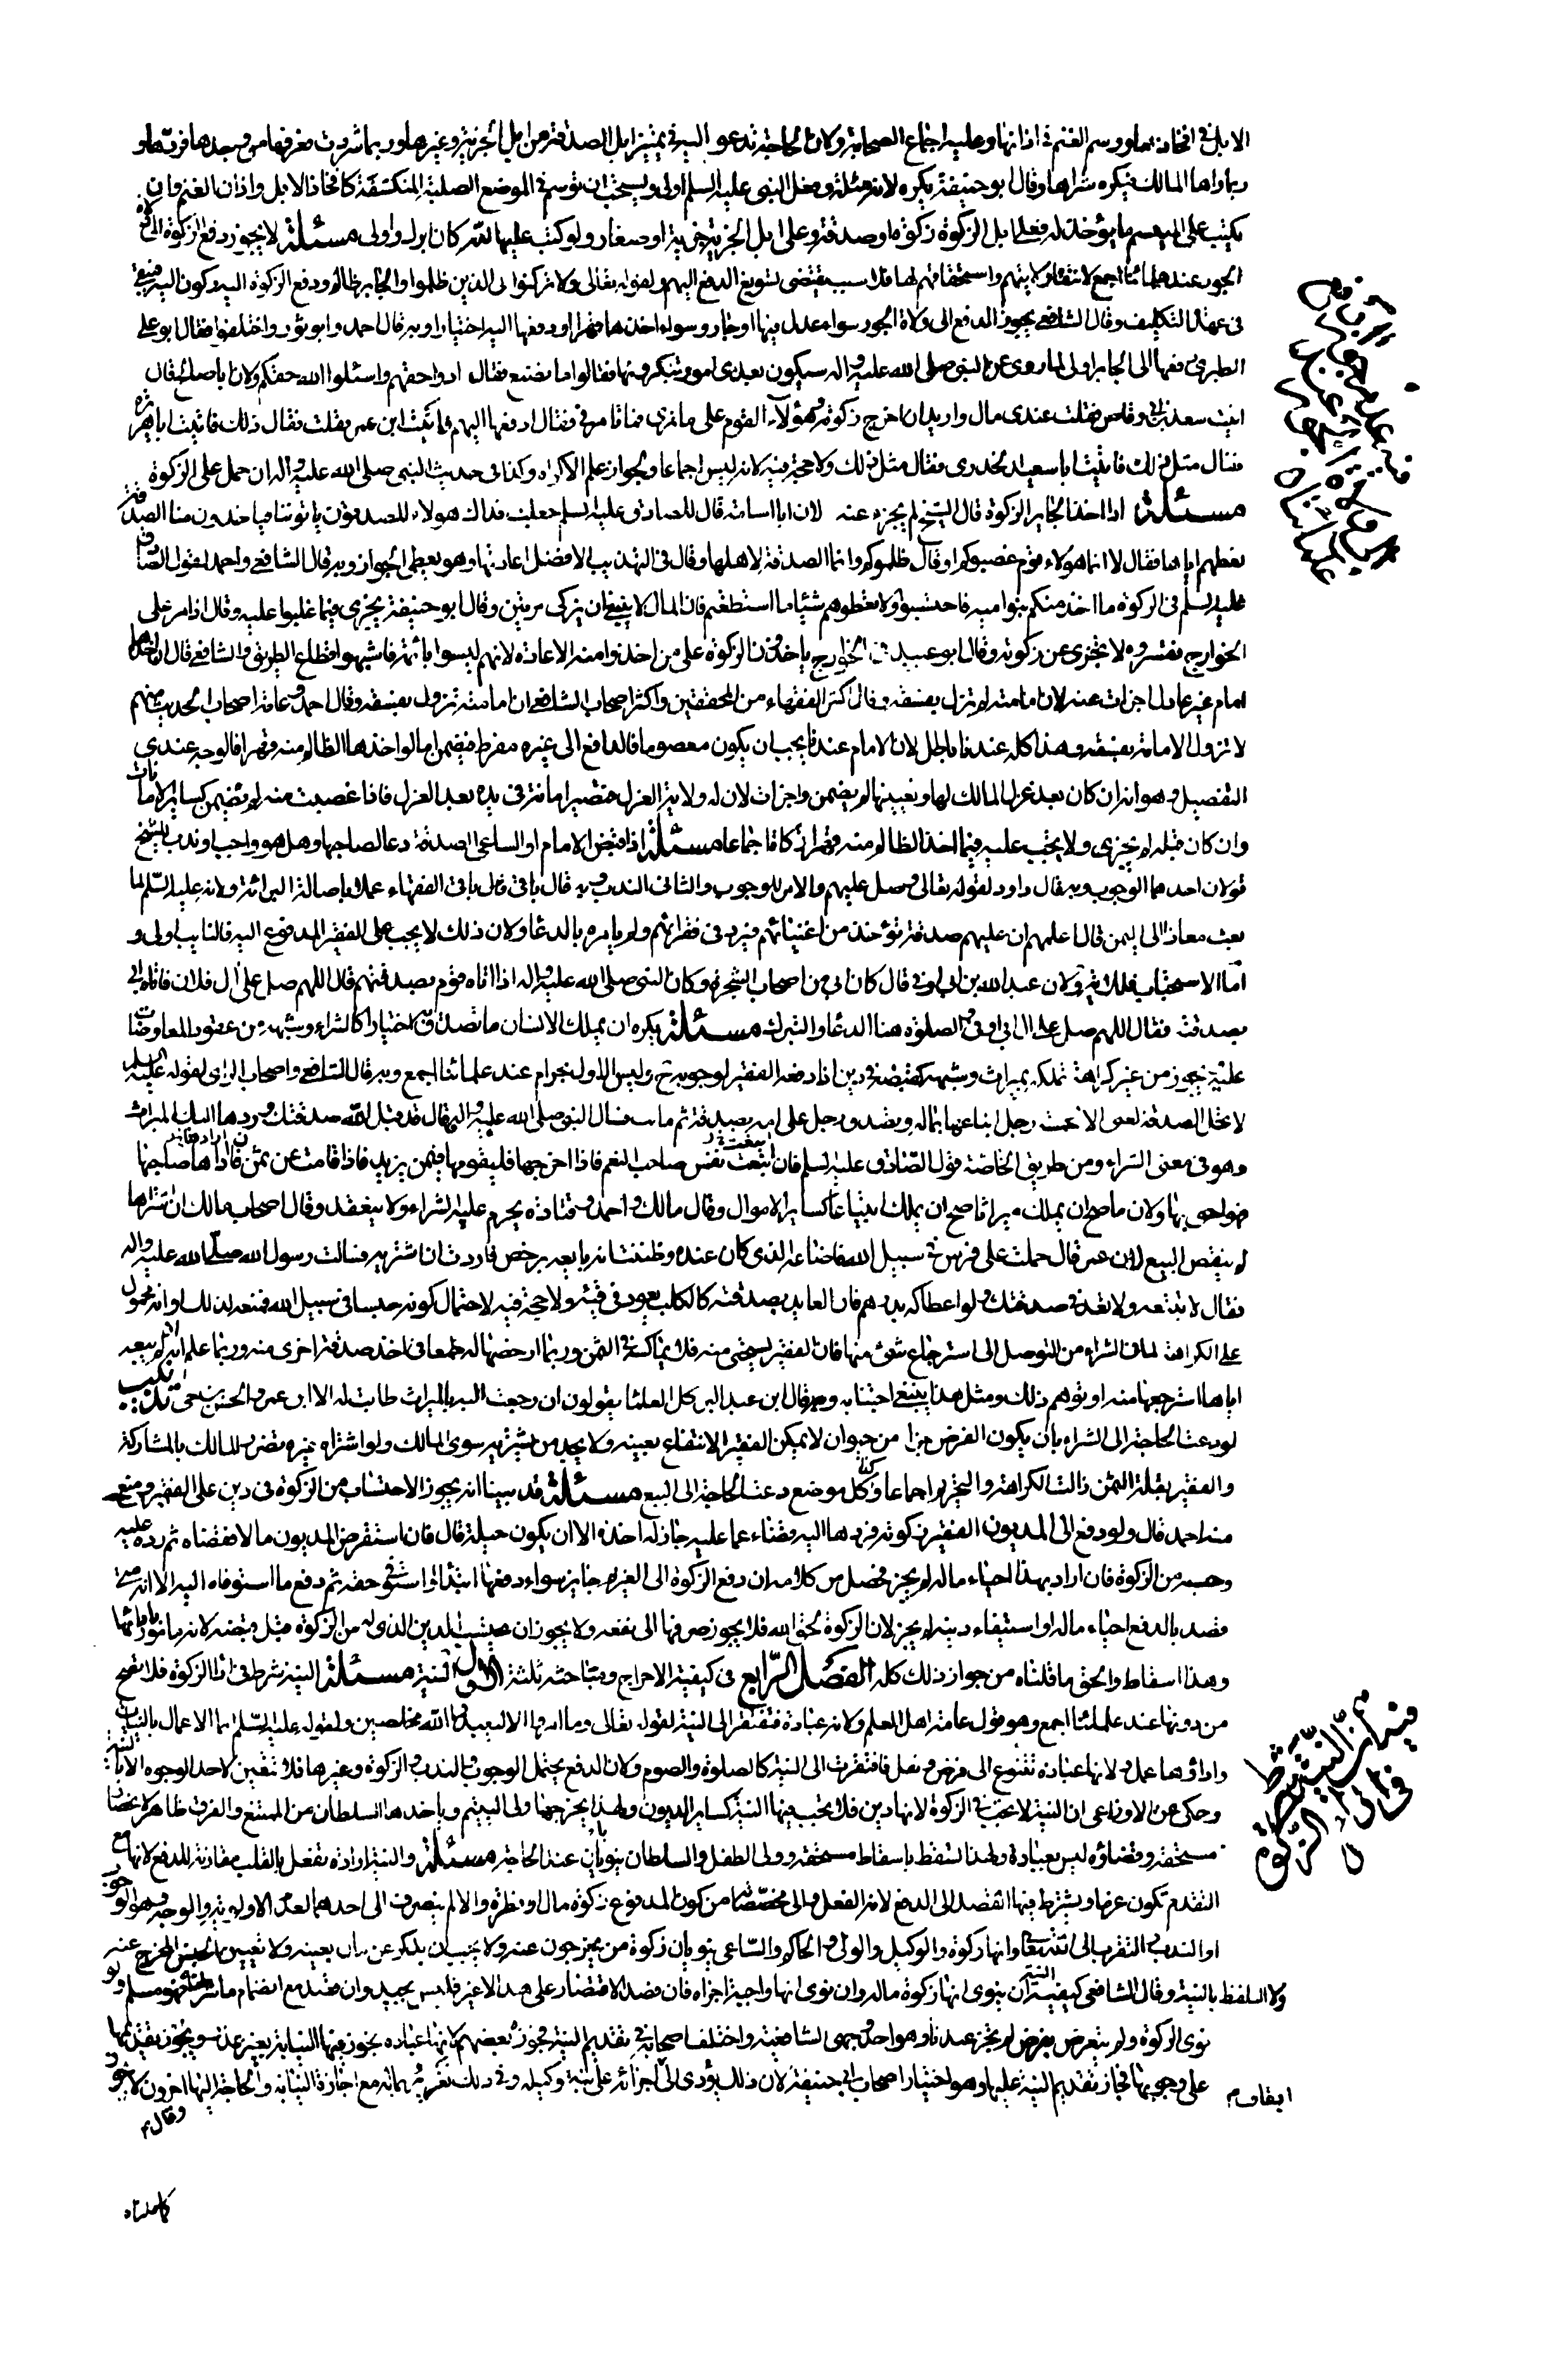 الابل فى افخاذها ووسم الغنم فى اذانها وعليه اجماع الصحابة ولان الحاجة تدعو اليه فى تمييز ابل الصدقة من ابل الجزية وغيرها وربما شردت فعرفها من وجدها فردها و
ربما راها المالك فيكره شراها وقال ابو حنيفة يكره لانه مثلة وفعل النبى عليه السلم اولى ويستحب ان توسم فى الموضع الصلبة المنكشفة كافخاذ الابل واذان الغنم وان
يكتب على الميسم ما يؤخذ له فعلى ابل الزكوة زكوة او صدقة وعلى ابل الجزية جزية او صغار ولو كتب عليها لله كان ابرك واولى مسئلة لا يجوز دفع الزكوة الى ولاة
الجور عند علمائنا اجمع لانتفاء ولايتهم واستحقاقهم لها فلا سبب يقتضى تسويغ الدفع اليهم ولقوله تعالى ولا تركنوا الى الذين ظلموا والجاير ظالم ودفع الزكوة اليه ركون اليه فيبقى
فى عهدة التكليف وقال الشافعى يجوز الدفع الى ولاة الجور سواء عدل فيها او جار وسواء اخذها قهرا او دفعها اليه اختيارا وبه قال احمد وابو ثور واختلفوا فقال ابو على
الطبرى دفعها الى الجاير اولى لما روى عن النبى صلى الله عليه واله سيكون بعدى امور تنكرونها فقالوا ما نصنع فقال ادوا حقهم واسئلوا الله حقكم ولان ابا صالح قال
اتيت سعد بن ابى وقاص فقلت عندى مال واريد ان اخرج زكوته وهؤلاء القوم على ما ترى فما تامرنى فقال ادفعها اليهم فاتيت ابن عمر فقلت فقال ذلك فاتيت ابا هريرة
فقال مثل ذلك فاتيت ابا سعيد الخدرى فقال مثل ذلك ولا حجة فيه لانه ليس اجماعا ولجواز علم الاكراه وكذا فى حديث النبى صلى الله عليه واله ان حمل على الزكوة
مسئلة اذا اخذ الجاير الزكوة قال الشيخ لم يجزه عنه لان ابا اسامة قال للصادق عليه السلم جعلت فداك هولاء المصدقون ياتوننا فياخذون منا الصدقة
نعطيهم اياها فقال لا انما هولاء قوم غصبوكم او قال ظلموكم وانما الصدقة لاهلها وقال فى التهذيب الافضل اعادتها وهو يعطى الجواز وبه قال الشافعى واحمد لقول الصادق
عليه السلم فى الزكوة ما اخذ منكم بنو امية فاحتسبوه ولا تعطوهم شيئا ما استطعتم فان المال لا ينبغى ان يزكى مرتين وقال ابو حنيفة يجزى فيما غلبوا عليه وقال اذا مر على
الخوارج فعشروه لا يجزى عن زكوته وقال ابو عبيد فى الخوارج ياخذون الزكوة على من اخذوا منه الاعادة لانهم ليسوا بائمة فاشبهوا قطاع الطريق والشافعى قال ان اخذها
امام غير عادل اجزات عنه لان امامته لم تزل بفسقه وقال اكثر الفقهاء من المحققين واكثر اصحاب الشافعى ان امامته تزول بفسقه وقال احمد وعامة اصحاب الحديث منهم
لا تزول الامامة بفسقه وهذا كله عندنا باطل لان الامام عندنا يجب ان يكون معصوما فالدافع الى غيره مفرط فيضمن اما لو اخذها الظالم منه قهرا فالوجه عندى
التفصيل وهو انه ان كان بعد عزل المالك لها وتعيينها لم يضمن واجزات لان له ولاية العزل فتصير امانة فى يده بعد العزل فاذا غصبت منه لم يضمن كساير الامانات
وان كان قبله لم يجزى ولا يجب عليه فيما اخذ الظالم منه قهرا زكاة اجماعا مسئلة اذا قبض الامام او الساعى الصدقة دعا لصاحبها وهل هو واجب او ندب للشيخ
قولان احدهما الوجوب وبه قال داود لقوله تعالى وصل عليهم والامر للوجوب والثانى الندب وبه قال باقى الفقهاء عملا باصالة البرائة ولانه عليه السلم لما
بعث معاذا الى اليمن قال اعلمهم ان عليهم صدقة تؤخذ من اغنيائهم فترد فى فقرائهم ولم يامره بالدعا ولان ذلك لا يجب على الفقير المدفوع اليه فالنايب اولى و
اما الاستحباب فللاية ولان عبد الله بن ابى اوفى قال كان ابى من اصحاب الشجرة وكان النبى صلى الله عليه واله اذا اتاه قوم بصدقتهم قال اللهم صل على ال فلان فاتاه ابى
بصدقته فقال اللهم صل على ال ابى اوفى والصلوة هنا الدعا والتبرك مسئلة يكره ان يملك الانسان ما تصدق به اختيارا كالشراء وشبهه من عقود المعاوضات
عليه يجوز من غير كراهة تملكه بميراث وشبهه كقبضه فى دين اذا دفعه الفقير لوجوبه ح وليس الاول بحرام عند علمائنا اجمع وبه قال الشافعى واصحاب الراى لقوله عليه السلم
لا تحل الصدقة لغنى الا خمسة رجل ابتاعها بماله وتصدق رجل على امه بصدقة ثم ماتت فسال النبى صلى الله عليه واله فقال قد قبل الله صدقتك وردها اليك الميراث
وهو فى معنى الشراء ومن طريق الخاصة قول الصادق عليه السلم فان تتبعت نفس صاحب الغنم فاذا اخرجها فليقومها فيمن يزيد فاذا قامت على ثمن فان ارادها صاحبها
فهو احق بها ولان ما صح ان يملك ميراثا صح ان يملك ابتياعا كساير الاموال وقال مالك واحمد وقتادة يحرم عليه الشراء ولا ينعقد وقال اصحاب مالك ان اشتراها
لم ينقض البيع لان عمر قال حملت على فرس فى سبيل الله فاضاعه الذى كان عنده وظننت انه بايعه برخص فاردت ان اشتريه فسالت رسول الله صلى الله عليه واله
فقال لا تبتعه ولا تعد فى صدقتك ولو اعطاكه بدرهم فان العايد بصدقته كالكلب يعود فى قيئه ولا حجة فيه لاحتمال كونه حبيسا فى سبيل الله فمنعه لذلك او انه محمول
على الكراهة لما فى الشراء من التوصل الى استرجاع شئ منها فان الفقير يستحيى منه فلا يماكسه فى الثمن وربما ارخصها له طمعا فى اخذ صدقة اخرى منه وربما علم انه لو لم يبعه
اياها استرجعها منه او توهم ذلك ومثل هذا ينبغى اجتنابه وقال ابن عبد البر كل العلماء يقولون ان رجعت اليه بالميراث طابت له الا ابن عمر والحسن بن حى
لو دعت الحاجة الى الشراء بان يكون الفرض جزءا من حيوان لا يمكن الفقير الانتفاع بعينه ولا يجد من يشتريه سوى المالك ولو اشتراه غيره تضرر المالك بالمشاركة
والفقير بقلة الثمن زالت الكراهة والتحريم اجماعا وكذا كل موضع دعت الحاجة الى البيع مسئلة قد بينا انه يجوز الاحتساب من الزكوة فى دين على الفقير ومنع
منه احمد قال ولو دفع الى المديون الفقير زكوته فردها اليه قضاء عما عليه جاز له اخذه الا ان يكون حيلة قال فان استقرض المديون مالا فقضاه ثم رده عليه
وحسبه من الزكوة فان اراد بهذا احياء ماله لم يجز فحصل من كلامه ان دفع الزكوة الى الغريم جايز سواء دفعها ابتداء او استوفى حقه ثم دفع ما استوفاه اليه الا انه متى
قصد بالدفع احياء ماله او استيفاء دينه لم يجز لان الزكوة لحق الله فلا يجوز صرفها الى نفعه ولا يجوز ان يحتسب الدين الذى له من الزكوة قبل قبضه لانه مامور بادائها
وهذا اسقاط والحق ما قلناه من جواز ذلك كله الفصل الرابع فى كيفية الاخراج ومباحثه ثلثة الاول النية مسئلة النية شرط فى اداء الزكوة فلا تصح
من دونها عند علمائنا اجمع وهو قول عامة اهل العلم ولانه عبادة فتفتقر الى النية لقوله تعالى وما امروا الا ليعبدوا الله مخلصين ولقوله عليه السلم انما الاعمال بالنيات
واداؤها عمل ولانها عبادة تتنوع الى فرض ونفل فافتقرت الى النية كالصلوة والصوم ولان الدفع يحتمل الوجوب والندب والزكوة وغيرها فلا تتعين لاحد الوجوه الا بالنية
وحكى عن الاوزاعى ان النية لا تجب فى الزكوة لانها دين فلا تجب فيها النية كساير الديون ولهذا يخرجها ولى اليتيم وياخذها السلطان من الممتنع والفرق ظاهر لانحصار
مستحقه وقضاؤه ليس بعبادة ولهذا تسقط باسقاط مستحقه وولى الطفل والسلطان ينويان عند الحاجة مسئلة والنية ارادة تفعل بالقلب مقارنة للدفع لانها مع
التقدم تكون عزما ويشترط فيها القصد الى الدفع لانه الفعل والى مخصصاته من كون المدفوع زكوة مال او فطرة والا لم ينصرف الى احدهما لعدم الاولوية والوجه وهو الوجوب
او الندب والتقرب الى الله تعالى وانها زكوة والوكيل والولى والحاكم والساعى ينويان زكوة من يخرجون عنه ولا يجب ان يذكر عن مال بعينه ولا تعيين الجنس المخرج عنه
ولا التلفظ بالنية وقال الشافعى كيفية النية ان ينوى انها زكوة ماله وان نوى انها واجبة اجزاه فان قصد الاقتصار على هذا لا غير فليس بجيد وان قصد مع انضمام ما شرطناه فهو مسلم ولو
نوى الزكوة ولم يتعرض بفرض لم يجز عندنا وهو احد وجهى الشافعية واختلف اصحابه فى تقديم النية فجوزه بعضهم لانها عبادة يجوز فيها النيابة بغير عذر ويجوز تقديمها
على وجوبها فجاز تقديم النية عليها وهو اختيار اصحاب ابى حنيفة لان ذلك يؤدى الى اجزائه على نية وكيله وفى ذلك تغرير بماله مع اجازة النيابة والحاجة اليها اخرون لا يجوز
وقال
فيه ان النية شرط
فى اداء الزكوة